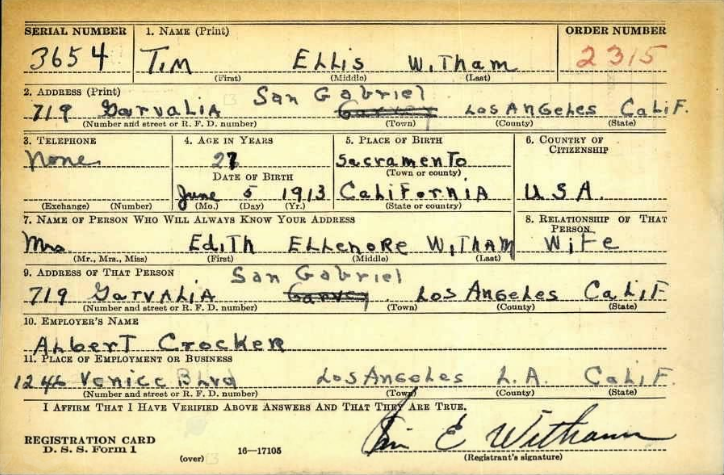 SERIAL NUMBER 1. NAME (Print) ORDER NUMBER
3654 TIM ELLIS WITHAM 2315
(First) (Middle) (Last)
2. ADDRESS (Print) San Gabriel
719 GARVALIA Garvey LOS ANGELES CALIF.
(Number and street or R. F. D. number) (Town) (County) (State)
3. TELEPHONE 4. AGE IN YEARS 5. PLACE OF BIRTH 6. COUNTRY OF CITIZENSHIP
None 27 Sacramento
DATE OF BIRTH (Town or county)
June 5 1913 CALIFORNIA U.S.A.
(Exchange) (Number) (Mo.) (Day) (Yr.) (State or country)
7. NAME OF PERSON WHO WILL ALWAYS KNOW YOUR ADDRESS 8. RELATIONSHIP OF THAT PERSON
Mrs EDITH ELLENORE WITHAM WIFE
(Mr., Mrs., Miss) (First) (Middle) (Last)
9. ADDRESS OF THAT PERSON San Gabriel
719 GARVALIA Garvey LOS ANGELES CALIF
(Number and street or R. F. D. number) (Town) (County) (State)
10. EMPLOYER'S NAME
ALBERT CROCKER
11. PLACE OF EMPLOYMENT OR BUSINESS
1246 Venice BLVD LOS ANGELES L.A. CALIF.
(Number and street or R. F. D. number) (Town) (County) (State)
I AFFIRM THAT I HAVE VERIFIED ABOVE ANSWERS AND THAT THEY ARE TRUE.
Tim E Witham
REGISTRATION CARD
D. S. S. Form 1 (over) 16—17105 (Registrant's signature)